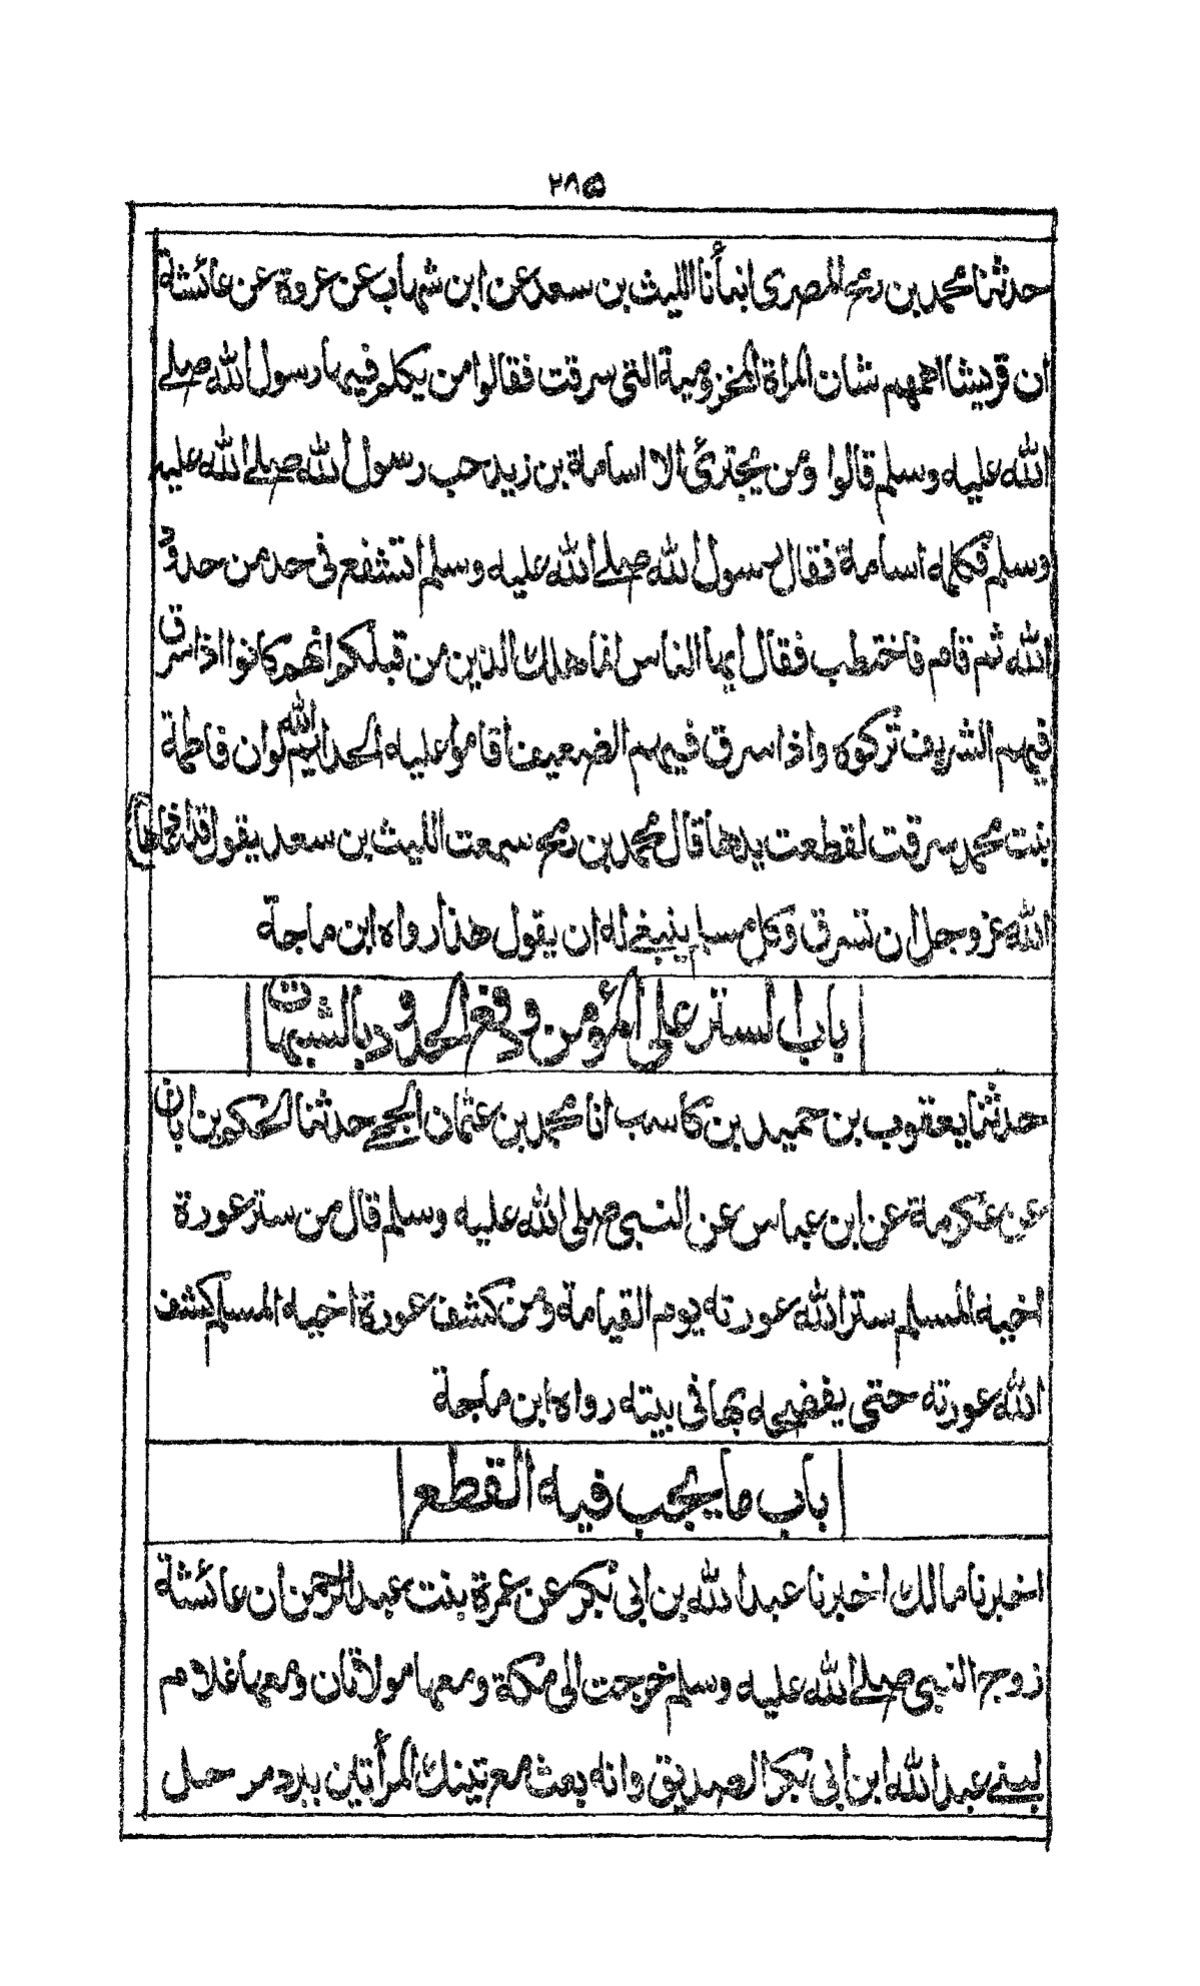 ٢٨٥
حدثنا محمد بن رمح المصرى انبأنا الليث بن سعد عن ابن شهاب عن عروة عن عائشة
ان قريشا اهمهم شان المراة المخزومية التى سرقت فقالوا من يكلم فيها رسول الله صلے
الله عليه وسلم قالوا ومن يجترئ الا اسامة بن زيد حب رسول الله صلے الله عليه
وسلم فكلمه اسامة فقال رسول الله صلے الله عليه وسلم اتشفع فى حد من حدود
الله ثم قام فاختطب فقال ايها الناس انما هلك الذين من قبلكم انهم كانوا اذا سرق
فيهم الشريف تركوه واذا سرق فيهم الضعيف اقاموا عليه الحد ايم الله لوان فاطمة
بنت محمد سرقت لقطعت يدها قال محمد بن رمح سمعت الليث بن سعد يقول قد اعاذها
الله عزوجل ان تسرق وكل مسلم ينبغے له ان يقول هذا رواه ابن ماجة
باب الستر على المؤمن ودفع الحدود بالشبهات
حدثنا يعقوب بن حميد بن كاسب انا محمد بن عثمان الجمحے حدثنا الحكم بن ابان
عن عكرمة عن ابن عباس عن النبى صلى الله عليه وسلم قال من ستر عورة
اخيه المسلم ستر الله عورته يوم القيامة ومن كشف عورة اخيه المسلم كشف
الله عورته حتى يفضحه بها فى بيته رواه ابن ماجة
باب ما يجب فيه القطع
اخبرنا مالك اخبرنا عبد الله بن ابى بكر عن عمرة بنت عبد الرحمن ان عائشة
زوج النبى صلے الله عليه وسلم خرجت الى مكة ومعها مولاتان ومعها غلام
لبنے عبد الله ابن ابى بكر الصديق وانه بعث مع تينك المرأتين ببرد مرحل